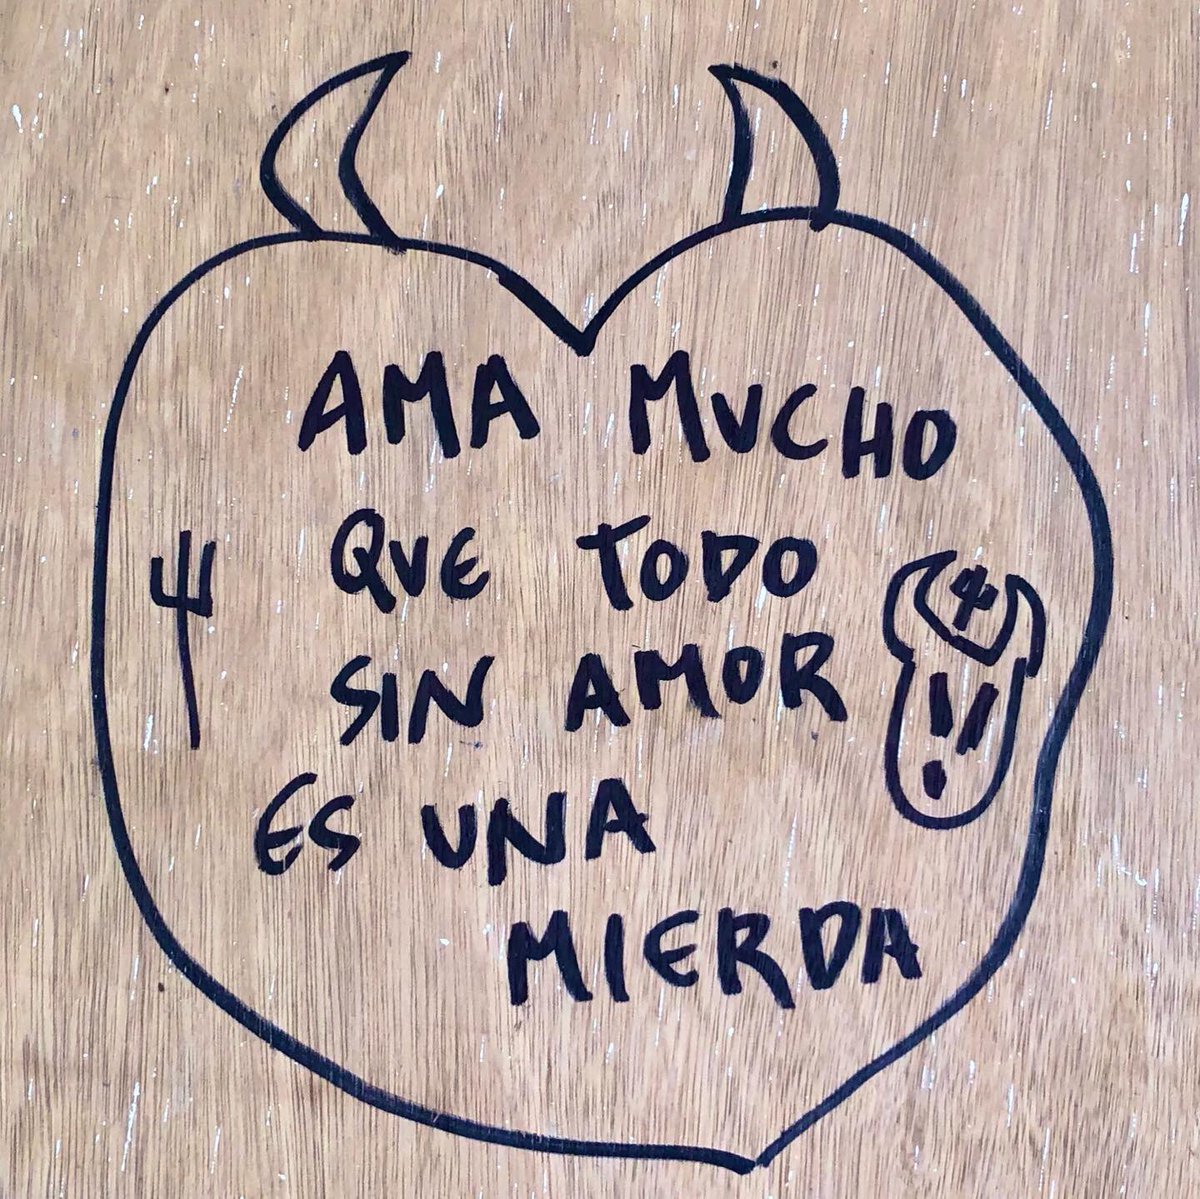 AMA MUCHO
QUE TODO
SIN AMOR
ES UNA
MIERDA